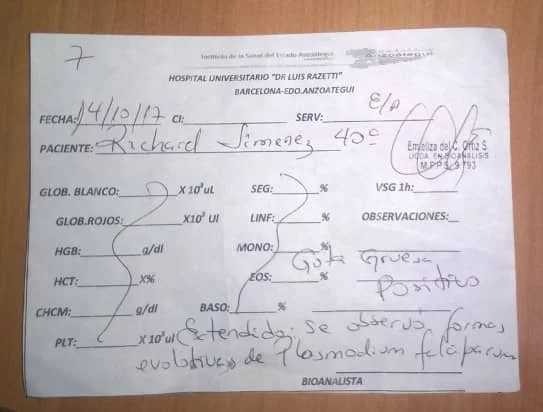 7
Instituto de la Salud del Estado Anzoategui
Anzoategui
HOSPITAL UNIVERSITARIO "DR LUIS RAZETTI"
BARCELONA-EDO.ANZOATEGUI
FECHA: 14/10/17 CI: SERV: E/A
PACIENTE: Richard Jimenez 40ª
C. Ortiz S.
LICDA. EN BIOANALISIS
M.P.P.S. 9.793
GLOB. BLANCO: X 10³uL SEG: % VSG 1h:
GLOB.ROJOS: X10³ Ul LINF: % OBSERVACIONES:
HGB: g/dl MONO: %
Gota Gruesa
HCT: X% EOS: %
Positivo
CHCM: g/dl BASO: %
PLT: X 10³ul Extendido: Se observó formas
evolutivas de Plasmodium falciparum
BIOANALISTA